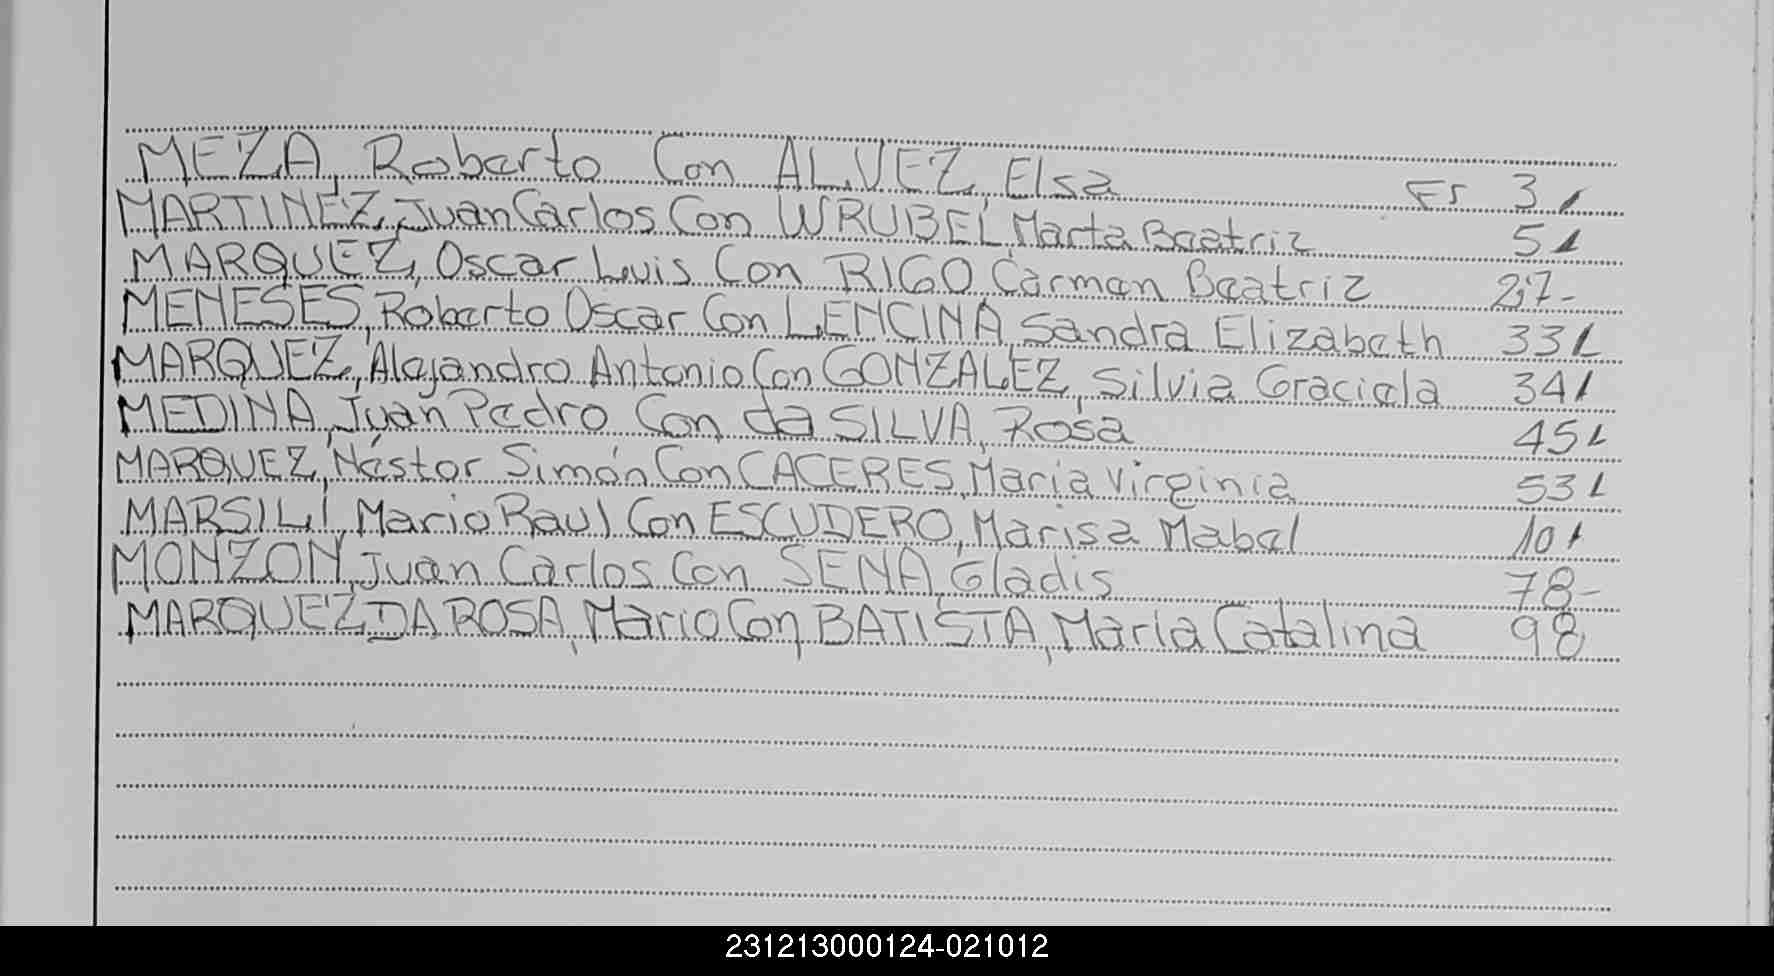 MEZA, Roberto Con ALVEZ, Elsa Fs 3
MARTINEZ, Juan Carlos Con WRUBEL, Marta Beatriz 5
MARQUEZ, Oscar Luis Con RIGO Carmen Beatriz 27-
MENESES, Roberto Oscar Con LENCINA, Sandra Elizabeth 33
MARQUEZ, Alejandro Antonio Con GONZALEZ, Silvia Graciela 34
MEDINA, Juan Pedro Con da SILVA, Rosa 45
MARQUEZ, Néstor Simón Con CACERES, Maria Virginia 53
MARSILI Mario Raul Con ESCUDERO, Marisa Mabel 10
MONZON, Juan Carlos Con SENA, Gladis 78-
MARQUEZ DA ROSA, Mario Con BATISTA, Maria Catalina 98
231213000124-021012